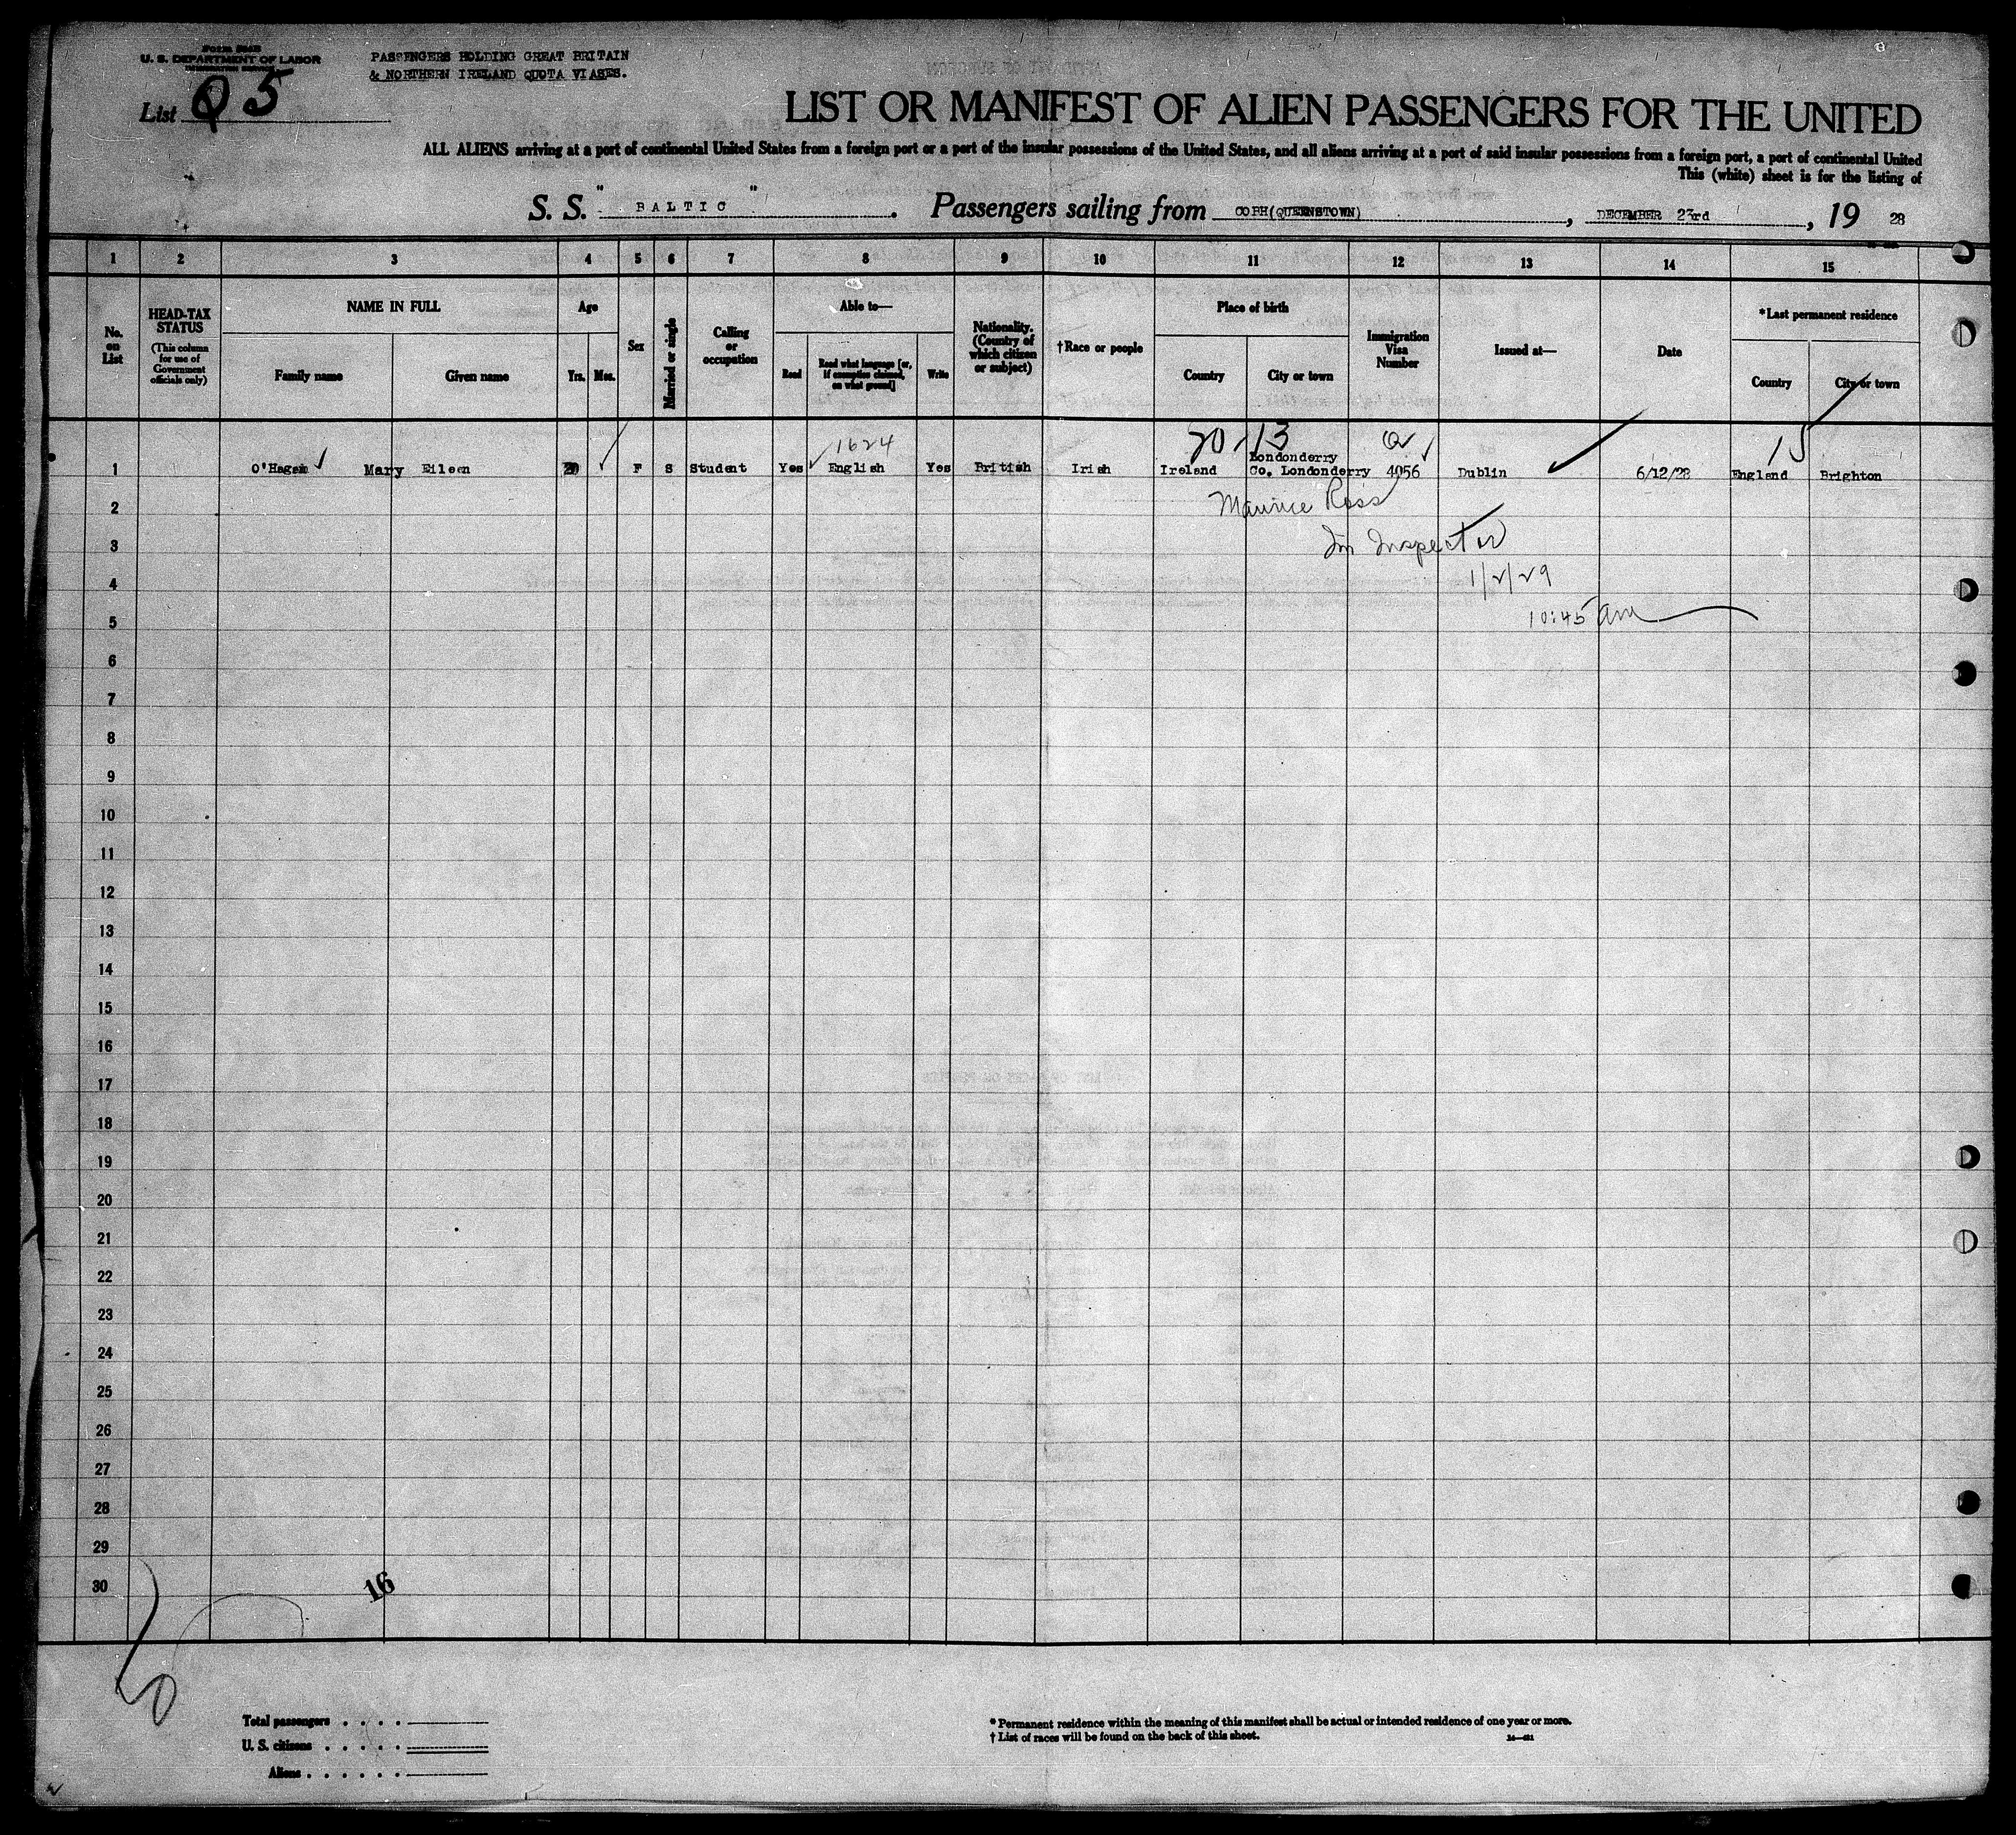 U. S. DEPARTMENT OF LABOR
PASSENGERS HOLDING GREAT BRITAIN
& NORTHERN IRELAND QUOTA VIASES.
List Q 5
LIST OR MANIFEST OF ALIEN PASSENGERS FOR THE UNITED
ALL ALIENS arriving at a port of continental United States from a foreign port or a port of the insular possessions of the United States, and all aliens arriving at a port of said insular possessions from a foreign port, a port of continental United
This (white) sheet is for the listing of
S. S. " BALTIC " . Passengers sailing from COBH(QUEENSTOWN) , DECEMBER 23rd , 19 28
1 2 3 4 5 6 7 8 9 10 11 12 13 14 15
No. on List
HEAD-TAX STATUS (This column for use of Government officials only)
NAME IN FULL
Family name Given name
Age
Yrs. Mos.
Sex
Married or single
Calling or occupation
Able to—
Read Read what language [or, if exemption claimed, on what ground] Write
Nationality. (Country of which citizen or subject)
†Race or people
Place of birth
Country City or town
Immigration Visa Number
Issued at—
Date
*Last permanent residence
Country City or town
1624 20 13 Q 15
1 O'Hagan Mary Eileen 20 F S Student Yes English Yes British Irish Ireland Londonderry Co. Londonderry 4056 Dublin 6/12/28 England Brighton
2 Maurice Ross
3 Im Inspector
4 1/2/29
5 10:45 am
6
7
8
9
10
11
12
13
14
15
16
17
18
19
20
21
22
23
24
25
26
27
28
29
30
16
Total passengers . . . .
U. S. citizens . . . . .
Aliens . . . . . .
* Permanent residence within the meaning of this manifest shall be actual or intended residence of one year or more.
† List of races will be found on the back of this sheet.